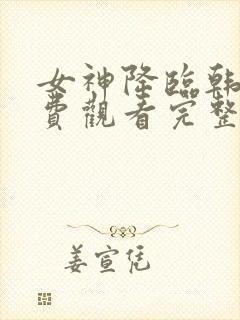 女神降临韩
费觀看完整
姜宣恁